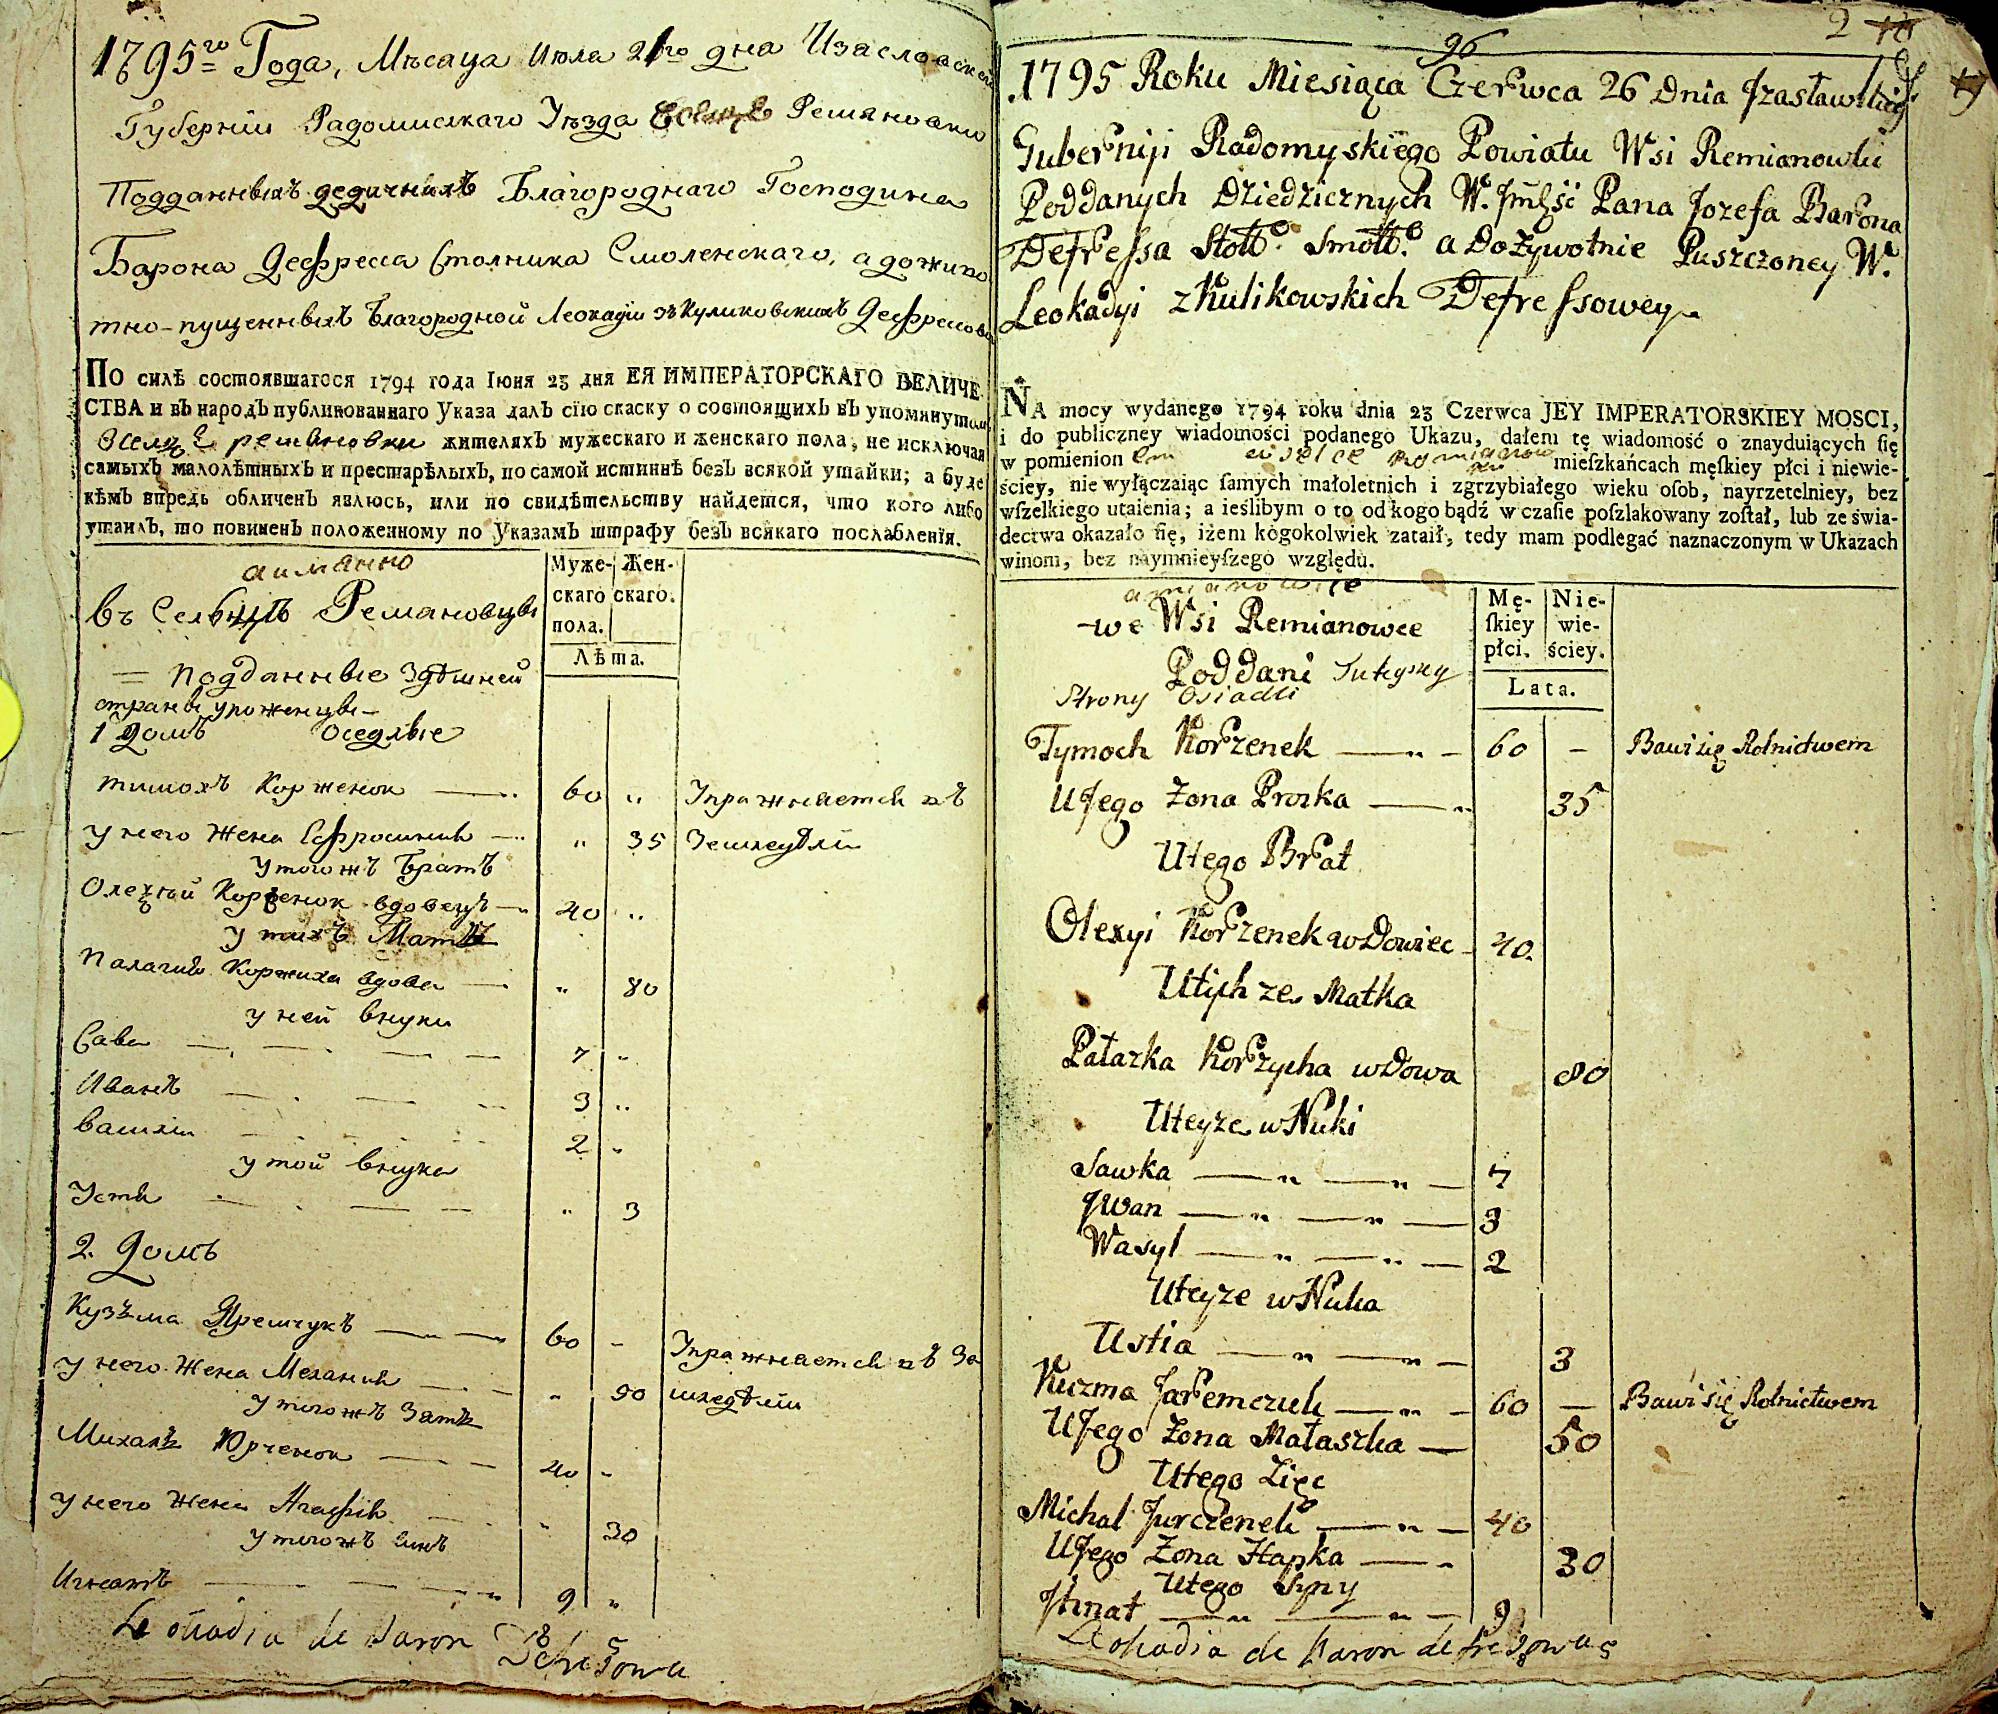 1795го Года, Мѣсаца Июла 21го дна Изаславской
Губернiи Радомисскаго Уѣзда Реманов­ки
Подданныхъ дедичныхъ Благороднаго Господина
Барона Дефресса Столника Смоленскаго, а доживо
тно-пущенныхъ Благородной Леокадiи зъ Куликовскихъ
ПО силѣ состоявшагося 1794 года Iюня 23 дня ЕЯ ИМПЕРАТОРСКАГО ВЕЛИЧЕ-
СТВА и въ народъ публикованнаго Указа далъ сiю скаску о состоящихъ въ упомянутом
жителяхъ мужескаго и женскаго пола, не исключая
самыхъ малолѣтныхъ и престарѣлыхъ, по самой истиннѣ безъ всякой утайки; а буде
кѣмъ впредь обличенъ явлюсь, или по свидѣтельству найдется, что кого либо
утаилъ, то повиненъ положенному по Указамъ штрафу безъ всякаго послабленiя.
аимянно
въ Селѣцѣ Ремановцѣ
= подданные здѣшней
страны уроженцы
1 Домъ оседлые
Муже-скаго пола. Жен-скаго.
Лѣта.
тимохъ Корженок — 60 „ Упражнается въ
у него Жена Ефросиния — „ 35 Земледѣлiи
у тогожъ Братъ
Олексѣй Корженок вдовецъ — 40 „
у тихъ Матѣ
Палагия Коржиха вдова — „ 80
у ней внуки
Сава — 7 „
Иванъ — 3 „
Василiи — 2 „
у той внука
Устѣ — „ 3
2. Домъ
Кузьма Яремчукъ — 60 - Упражнается въ Зе
у него Жена Мелания — „ 50 мледѣлiи
у тогожъ Зять
Михаль Юрченок — 40 „
у него Жена Агафiя — „ 30
у тогожъ синъ
Игнатъ — 9 „
Leokadia de Baron Defresowa
2
96
.1795 Roku Miesiąca Czerwca 26 Dnia Jzasławskiey
Guberniji Radomyskiego Powiatu Wsi Remianowki
Poddanych Dziedzicznych W. Jmść Pana Jozefa Barona
Defressa Stolk. Smolk. a Dożywotnie Puszczoney W.
Leokadyi z Kulikowskich Defressowey
NA mocy wydanego 1794 roku dnia 23 Czerwca JEY IMPERATORSKIEY MOSCI,
i do publiczney wiadomości podanego Ukazu, dałem tę wiadomość o znayduiących ſię
w pomienion em wiosce Remianow ce mieſzkańcach męſkiey płci i niewie-
ściey, nie wyłączaiąc ſamych małoletnich i zgrzybiałego wieku oſob, nayrzetelniey, bez
wſzelkiego utaienia; a ieślibym o to od kogo bądź w czaſie poſzlakowany zoſtał, lub ze świa-
dectwa okazało ſię, iżem kogokolwiek zataił, tedy mam podlegać naznaczonym w Ukazach
winom, bez naymnieyſzego względu.
amianowice
-we Wsi Remianowce
Poddani Tuteyszy
Strony Osiadli
Mę-ſkiey płci. Nie-wie-ściey.
Lata.
Tymoch Korzenek — 60 — Bawi się Rolnictwem
U Jego Żona Proska — 35
U tego Brat
Olexyi Korzenek wDowiec - 40.
U tych ze Matka
Pałazka Korzycha wDowa 80
U teyze wNuki
Sawka — 7
Jwan — 3
Wasyl — 2
U teyze wNuka
Ustia — 3
Kuzma Jaremczuk — 60 — Bawi się Rolnictwem
U Jego Żona Małaszka — 50
U tego Zięc
Michal Jurczenek — 40
U Jego Żona Hapka — 30
U tego Syny
Jhnat — 9
Leokadia de Baron defresowa